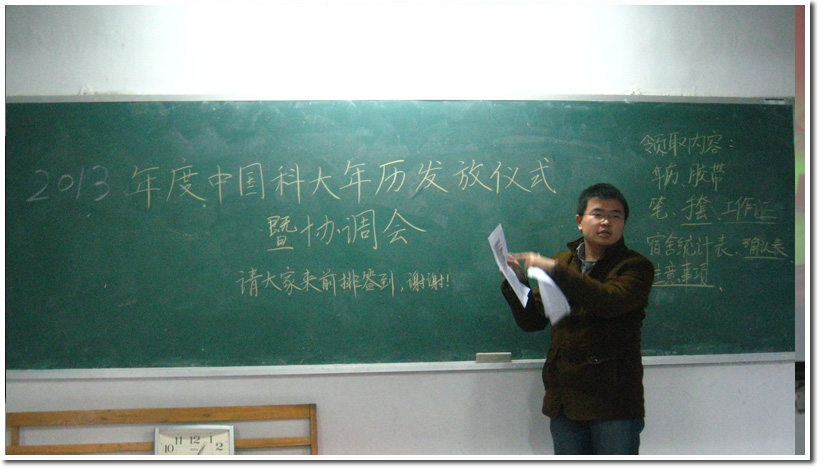 2013年度中国科大年历发放仪式
暨协调会
请大家来前排签到,谢谢!
领取内容:
年历、胶带
笔、工作证
宿舍统计表、确认表、
注意事项
10 11 12 1 2